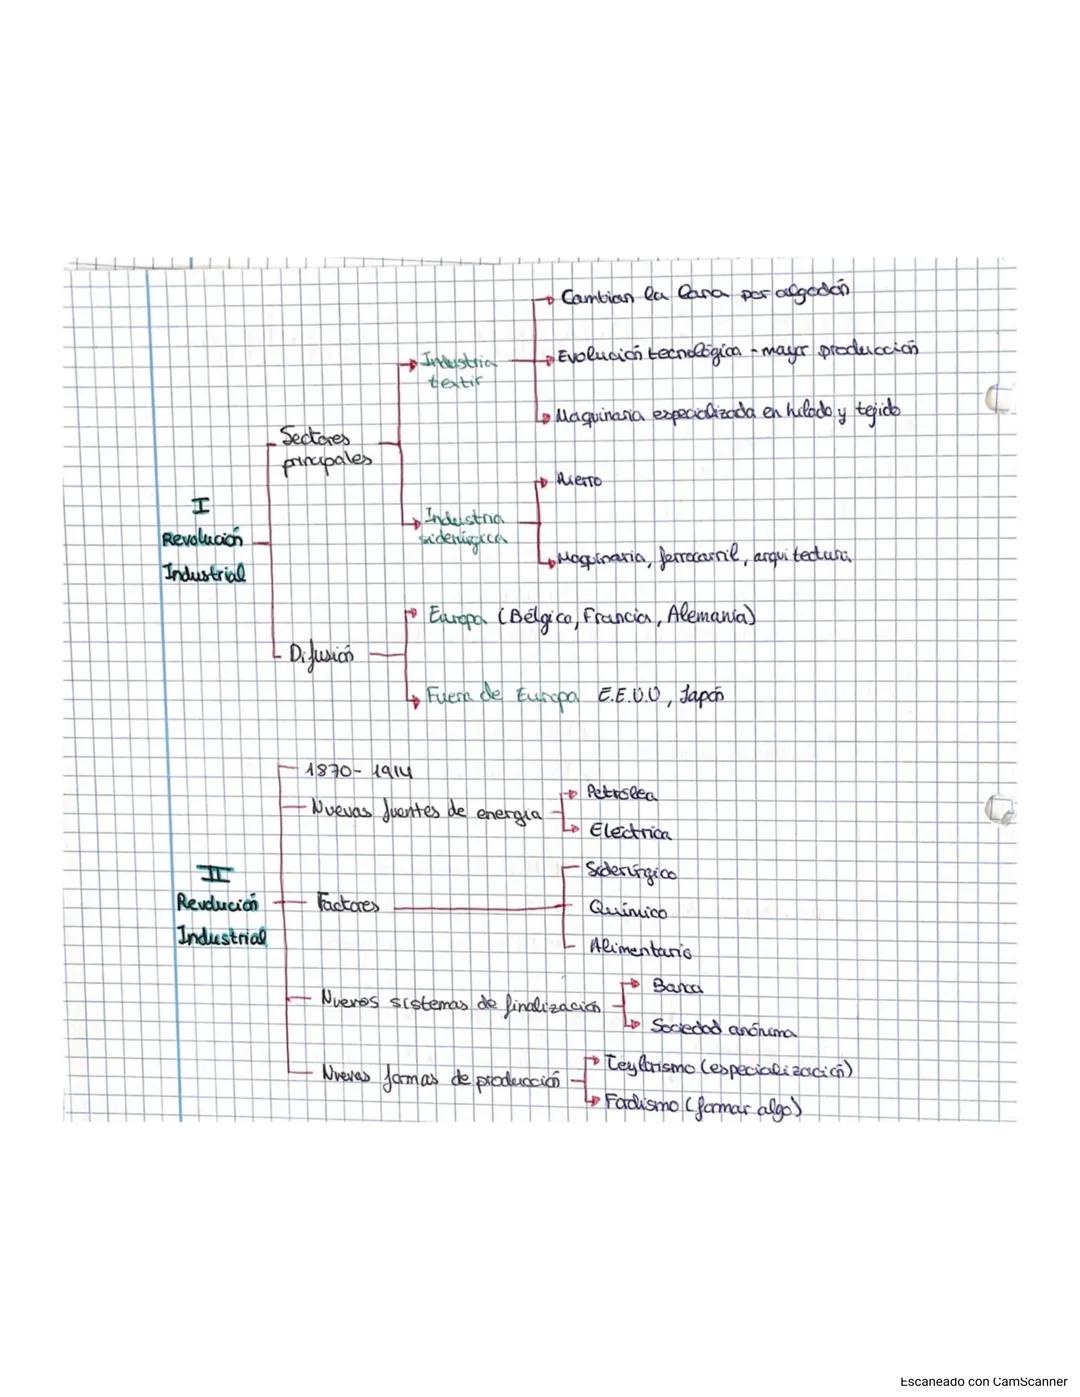 Cambian la lana por algodón
Industria
textir
Evolución tecnológica - mayor producción
Maquinaria especializada en hilado y tejido
Sectores
principales
Hierro
I
Revolución
Industrial
Industria
siderúgica
Maquinaria, ferrocarril, arquitectura
Europa (Bélgica, Francia, Alemania)
Difusión
Fuera de Europa E.E.U.U, Japón
1870-1914
Nuevas fuentes de energía
Petrolea
Eléctrica
II
Revolución
Industrial
Factores
Siderúrgico
Químico
Alimentario
Nuevos sistemas de finalización
Banca
Sociedad anónima
Nuevas formas de producción
Teylorismo (especialización)
Fordismo (formar algo)
Escaneado con CamScanner